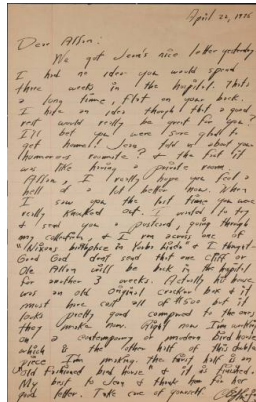 April 22, 1976
Dear Allan:
We got Jean's nice letter yesterday
I had no idea you would spend
three weeks in the hospital. That's
a long time, flat on your back.
I had an idea though that a good
rest would really be great for you?
I'll bet you were sure glad to
get home! Jean told us about your
humorous roomate? & the fact it
was like having a private room.
Allan, I really hope you feel a
hell of a lot better now. When
I saw you the last time you were
really knocked out. I wanted to try
& send you a postcard, going through
my collection, & I ran across one of
"Nixons birthplace in Yorba linda" & I thought
Good God don't send that one Cliff or
Ole Allan will be back in the hospital
for another 3 weeks. Actually his house
was an old original cracker box & it
must have cost all of $500 but it
looks pretty good compared to the ones
they make now. Right now I'm working
on a contemporary or modern bird house
which is the other half of this double
piece I'm making. The first half is an
"Old fashioned bird house" & it is finished.
My best to Jean & thank her for her
good letter. Take care of yourself.